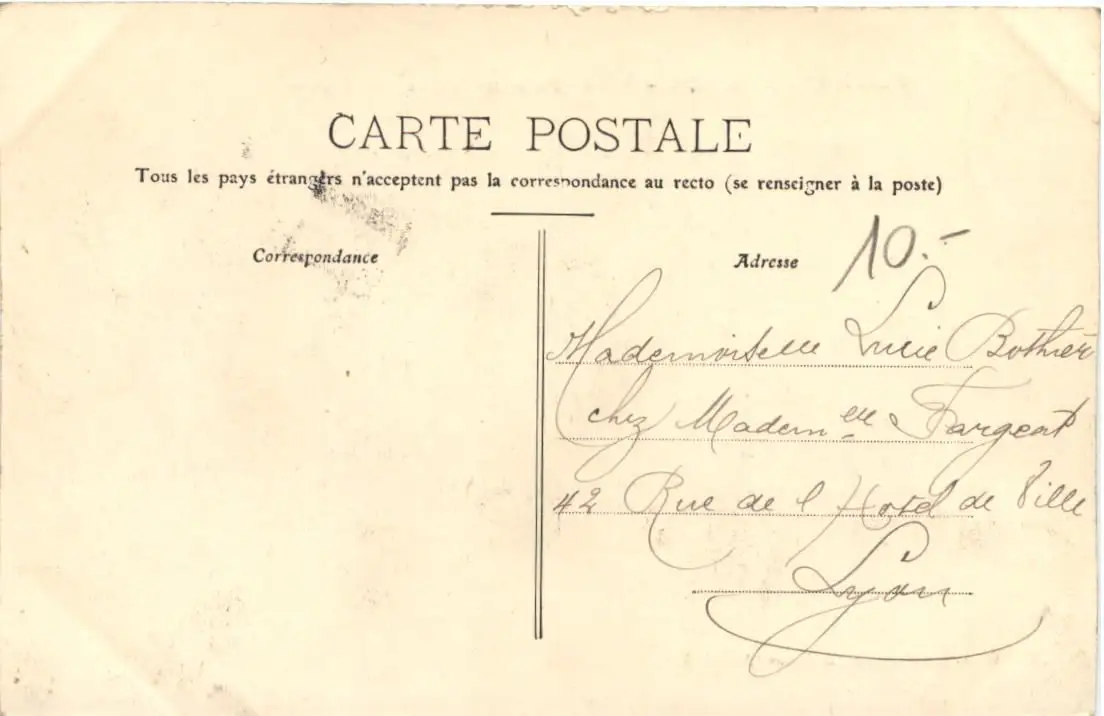 CARTE POSTALE
Tous les pays étrangers n'acceptent pas la correspondance au recto (se renseigner à la poste)
Correspondance
Adresse
10.-
Mademoiselle Lucie Bothier
chez Madem elle Fargeat
42 Rue de l Hotel de Ville
Lyon